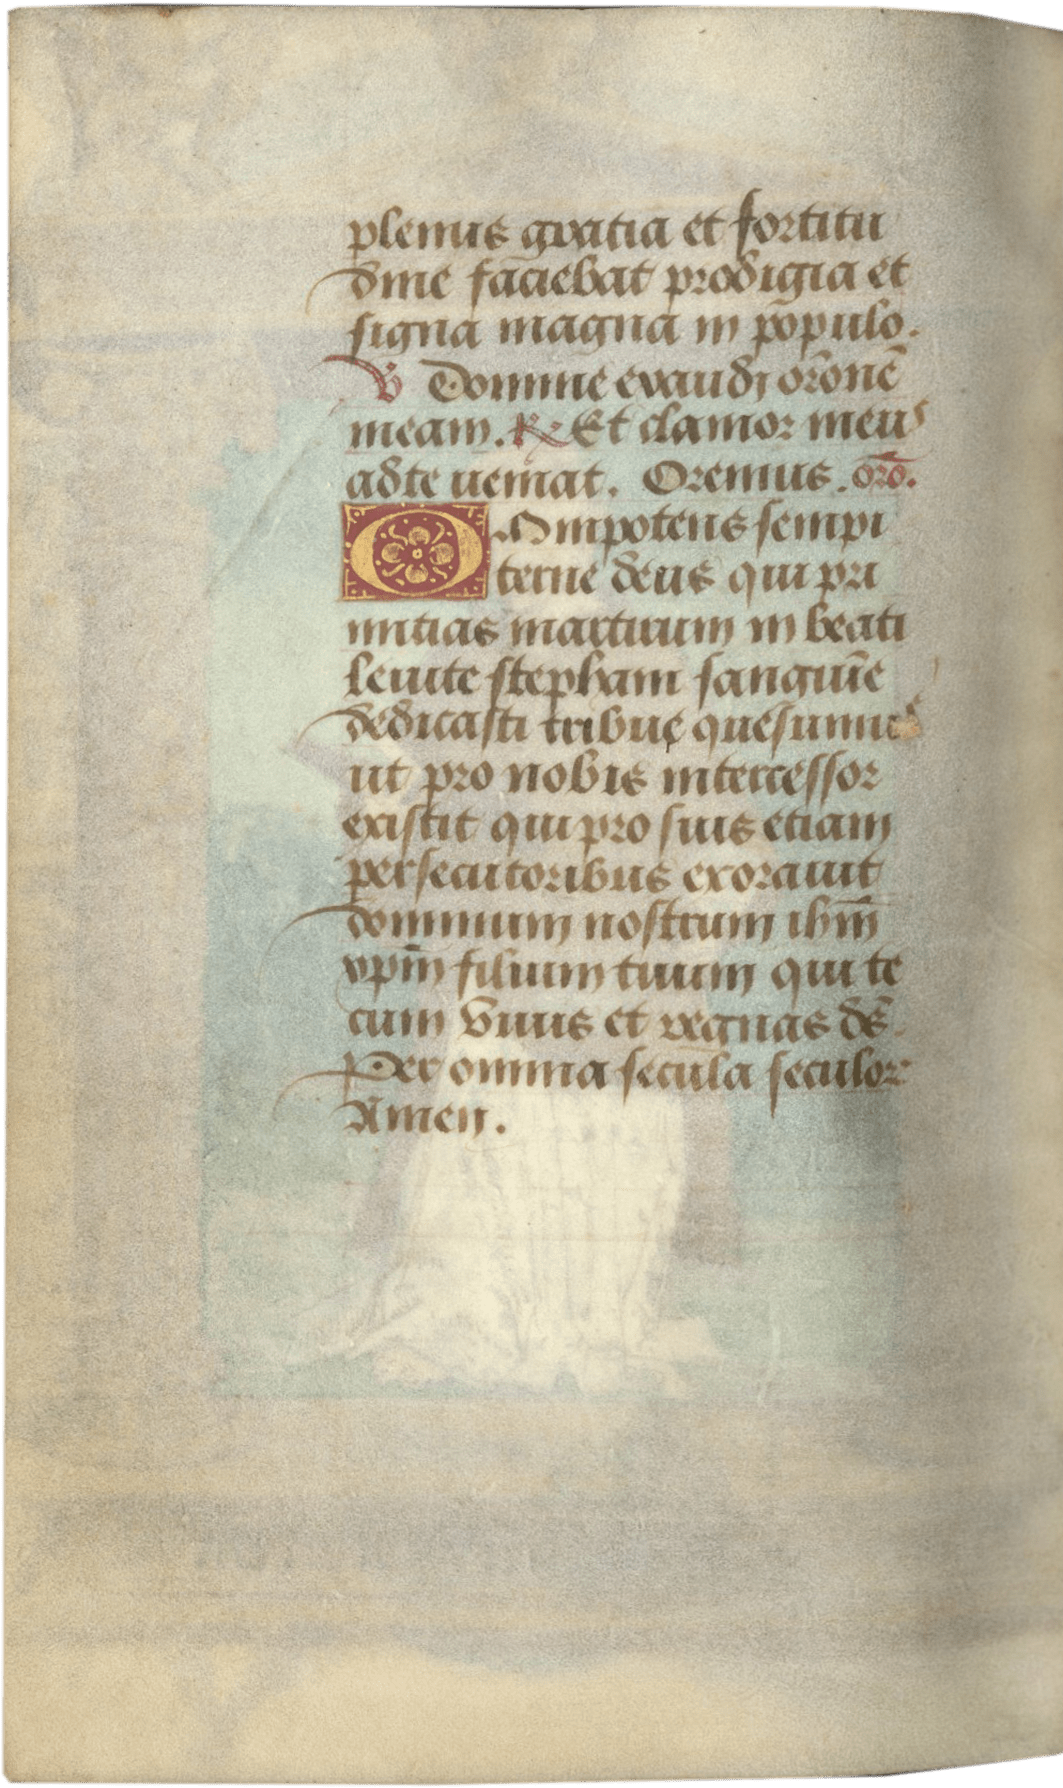 plenus gratia et fortitu
dine faciebat prodigia et
signa magna in populo.
V Domine exaudi orōnē
meam. R Et clamor meus
ad te ueniat. Oremus. orō.
Omnipotens sempi
terne deus qui pri
mitias martirum in beati
leuite stephani sanguīe
dedicasti tribue quesumus
ut pro nobis intercessor
existit qui pro suis etiam
persecutoribus exorauit
dominum nostrum ihm̄
xpm̄ filium tuum qui te
cum viuis et regnas ds̄.
Per omnia secula seculor
Amen.